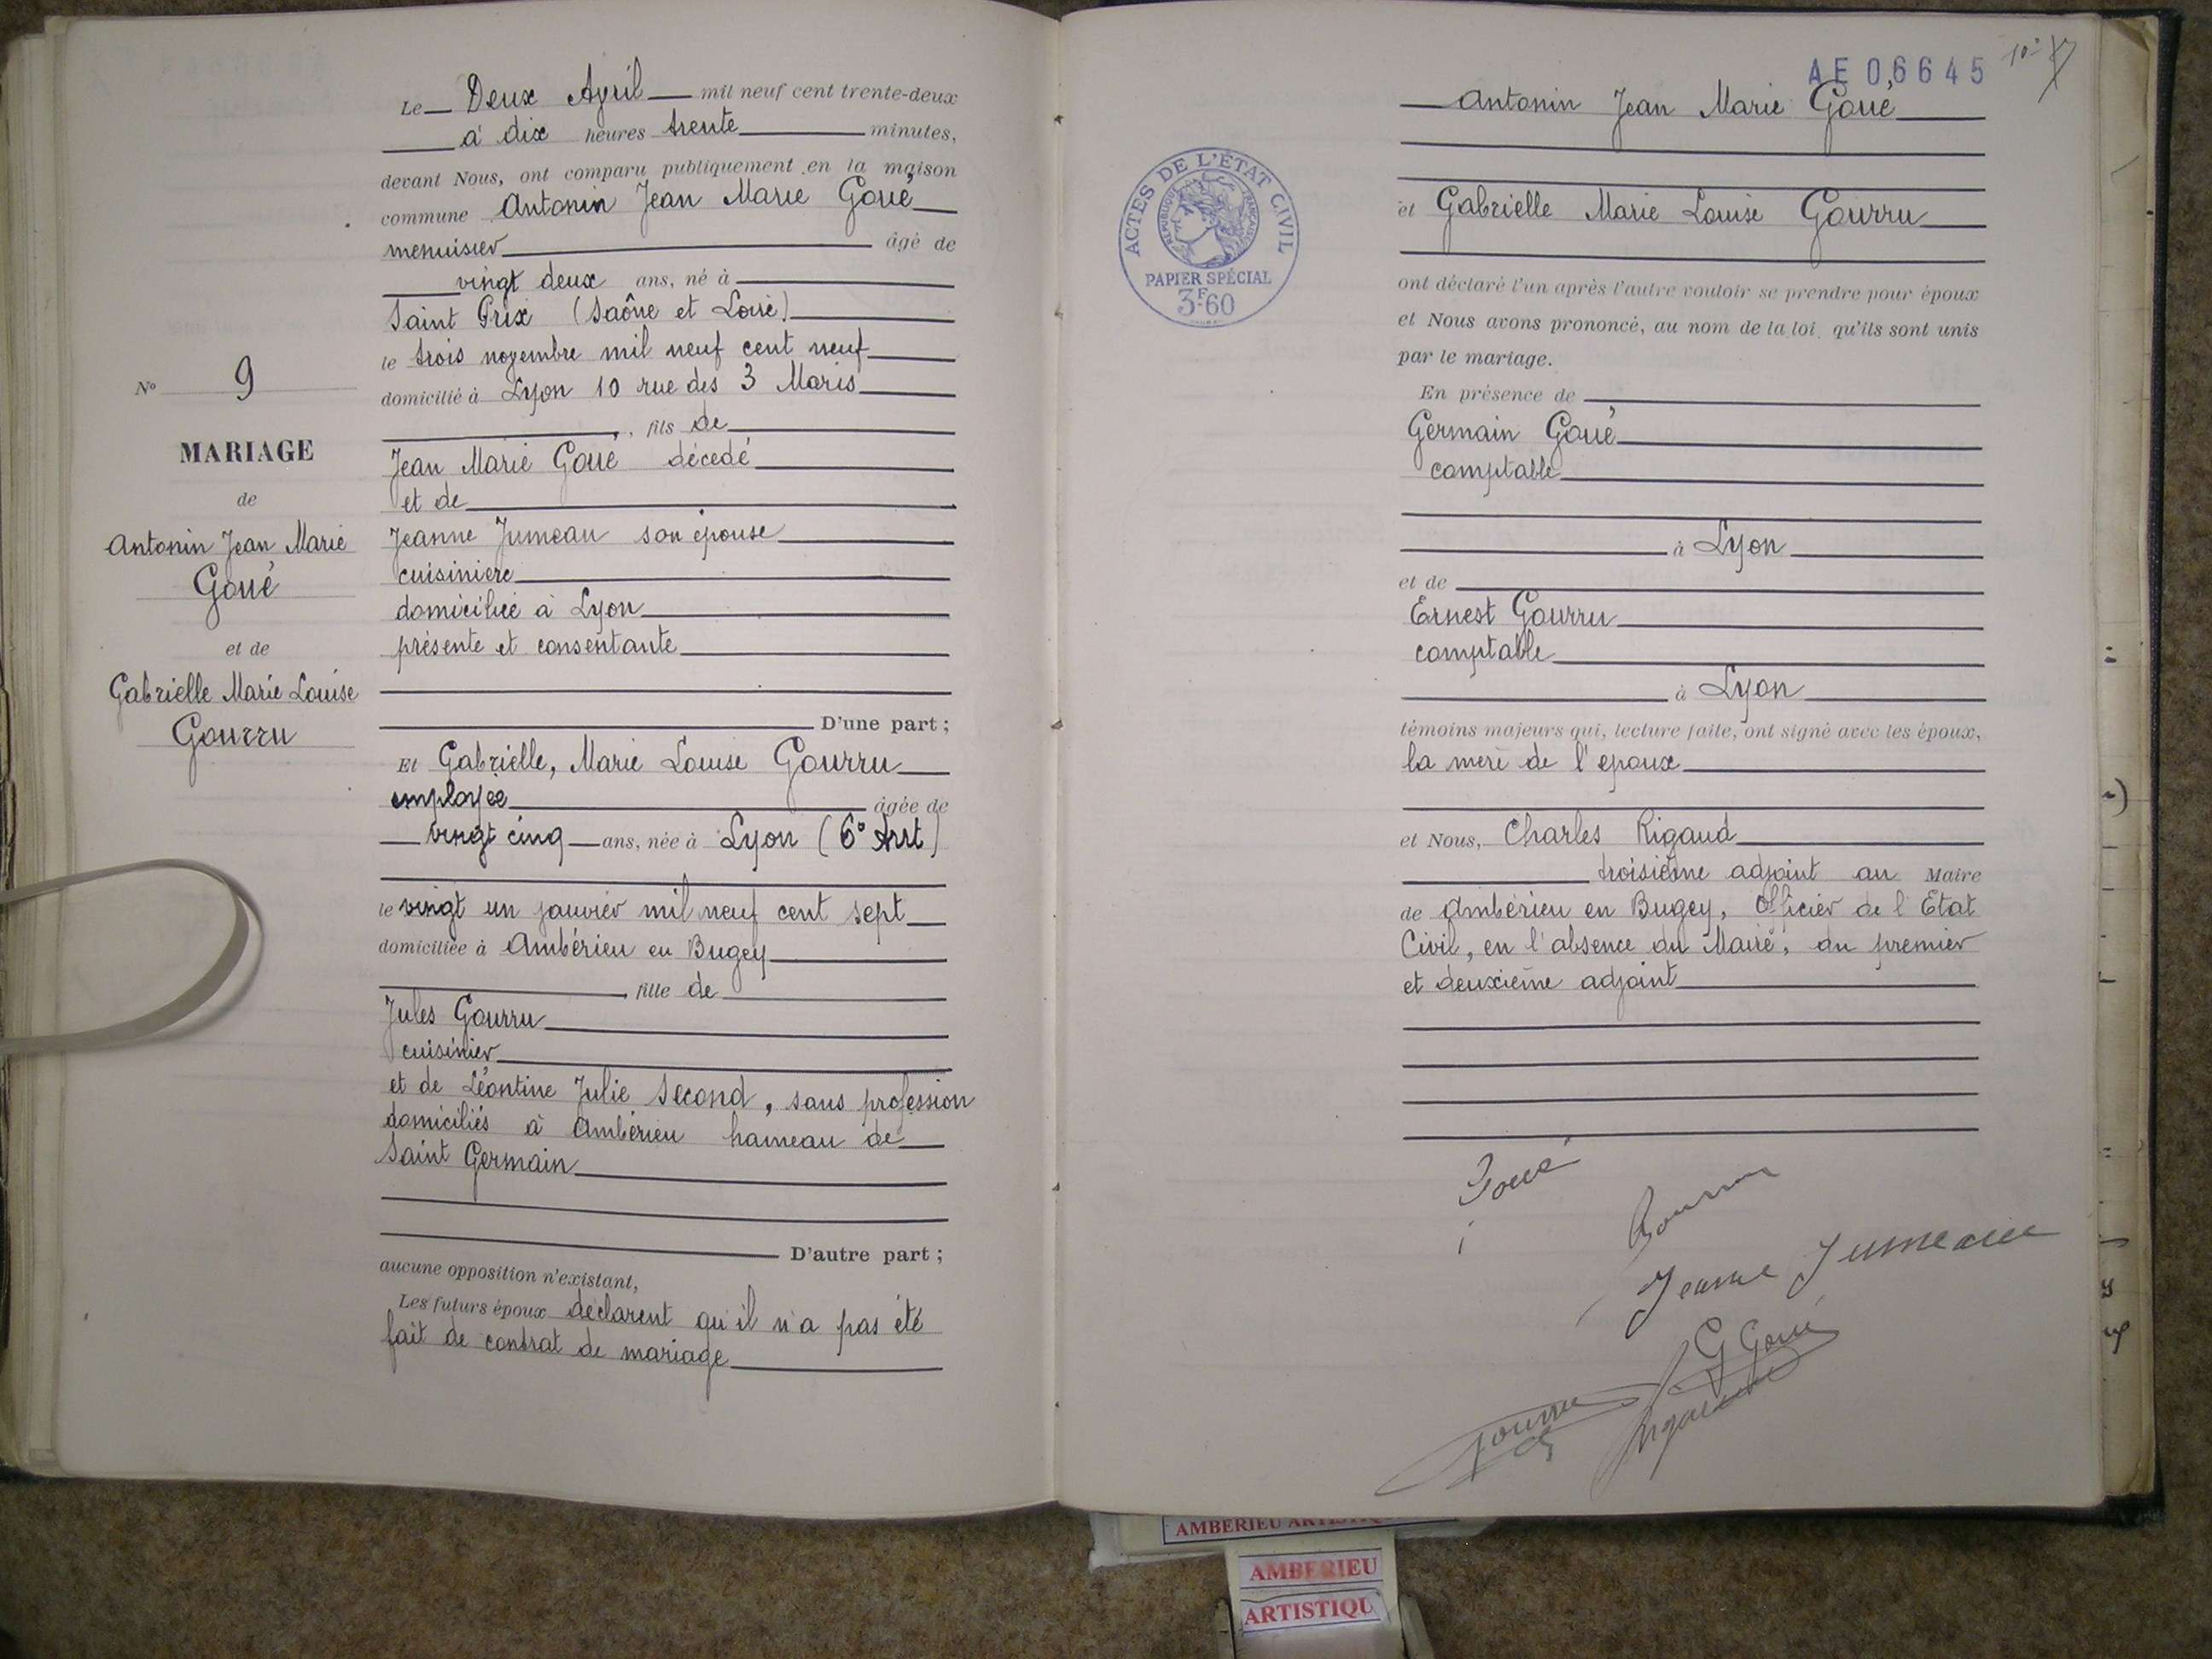 N° 9
MARIAGE
de
Antonin Jean Marie
Goué
et de
Gabrielle Marie Louise
Gourru
Le Deux Avril mil neuf cent trente-deux
à dix heures trente minutes,
devant Nous, ont comparu publiquement en la maison
commune Antonin Jean Marie Goué
menuisier âgé de
vingt deux ans, né à
Saint Prix (Saône et Loire)
le trois novembre mil neuf cent neuf
domicilié à Lyon 10 rue des 3 Maris
, fils de
Jean Marie Goué décédé
et de
Jeanne Jumeau son épouse
cuisinière
domiciliée à Lyon
présente et consentante
D'une part ;
Et Gabrielle, Marie Louise Gourru
employée âgée de
vingt cinq ans, née à Lyon (6° Arrt)
le vingt un janvier mil neuf cent sept
domiciliée à Ambérieu en Bugey
, fille de
Jules Gourru
cuisinier
et de Léontine Julie Second, sans profession
domiciliés à Ambérieu hameau de
Saint Germain
D'autre part ;
aucune opposition n'existant,
Les futurs époux déclarent qu'il n'a pas été
fait de contrat de mariage
AE 06645
ACTES DE L'ÉTAT CIVIL
RÉPUBLIQUE FRANÇAISE
PAPIER SPÉCIAL
3F60
Antonin Jean Marie Goué
et Gabrielle Marie Louise Gourru
ont déclaré l'un après l'autre vouloir se prendre pour époux
et Nous avons prononcé, au nom de la loi, qu'ils sont unis
par le mariage.
En présence de
Germain Goué
comptable
à Lyon
et de
Ernest Gourru
comptable
à Lyon
témoins majeurs qui, lecture faite, ont signé avec les époux,
la mère de l'epoux
et Nous, Charles Rigaud
troisième adjoint au Maire
de Ambérieu en Bugey, Officier de l'Etat
Civil, en l'absence du Maire, du premier
et deuxième adjoint
Goué
Gourru
Jeanne Jumeau
G Goué
Gourru
Rigaud
AMBERIEU
AMBERIEU
ARTISTIQU